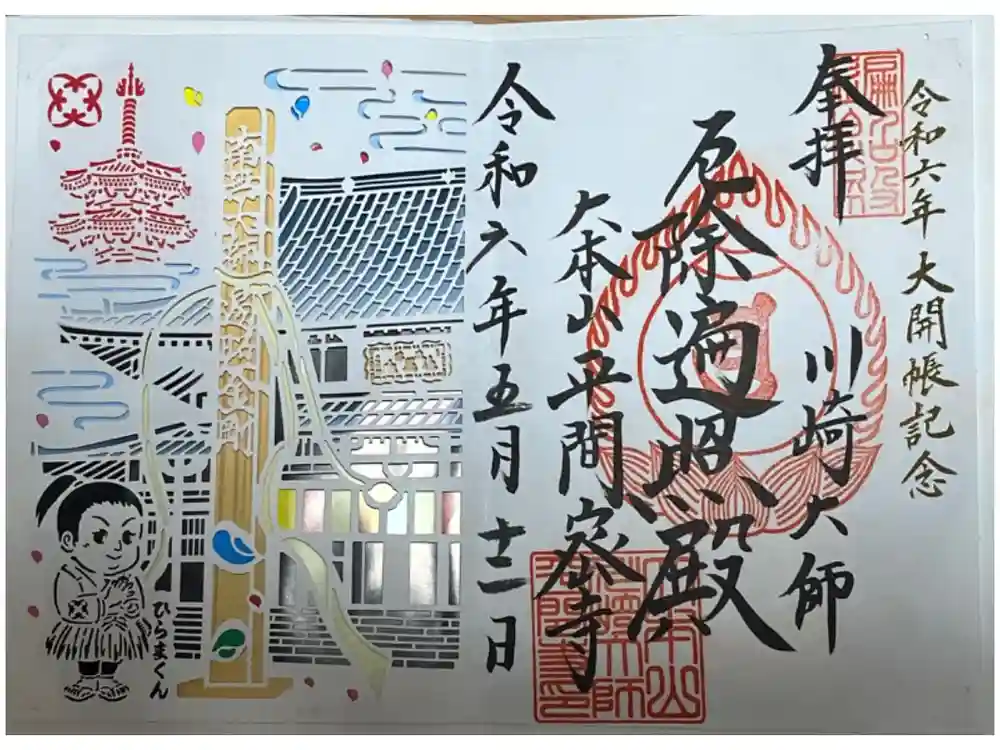 令和六年 大開帳記念
奉拝
川崎大師
厄除遍照殿
大本山平間密寺
令和六年五月十二日
ひらまくん